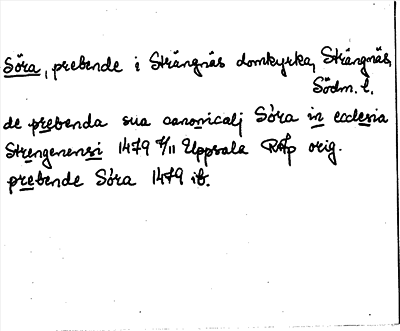 Söra, prebende i Strängnäs domkyrka, Strängnäs,
Södm. l.
de prebenda sua canonicalj Sóra in ecclesia
Strengenensi 1479 4/11 Uppsala RAp orig.
prebende Sóra 1479 ib.